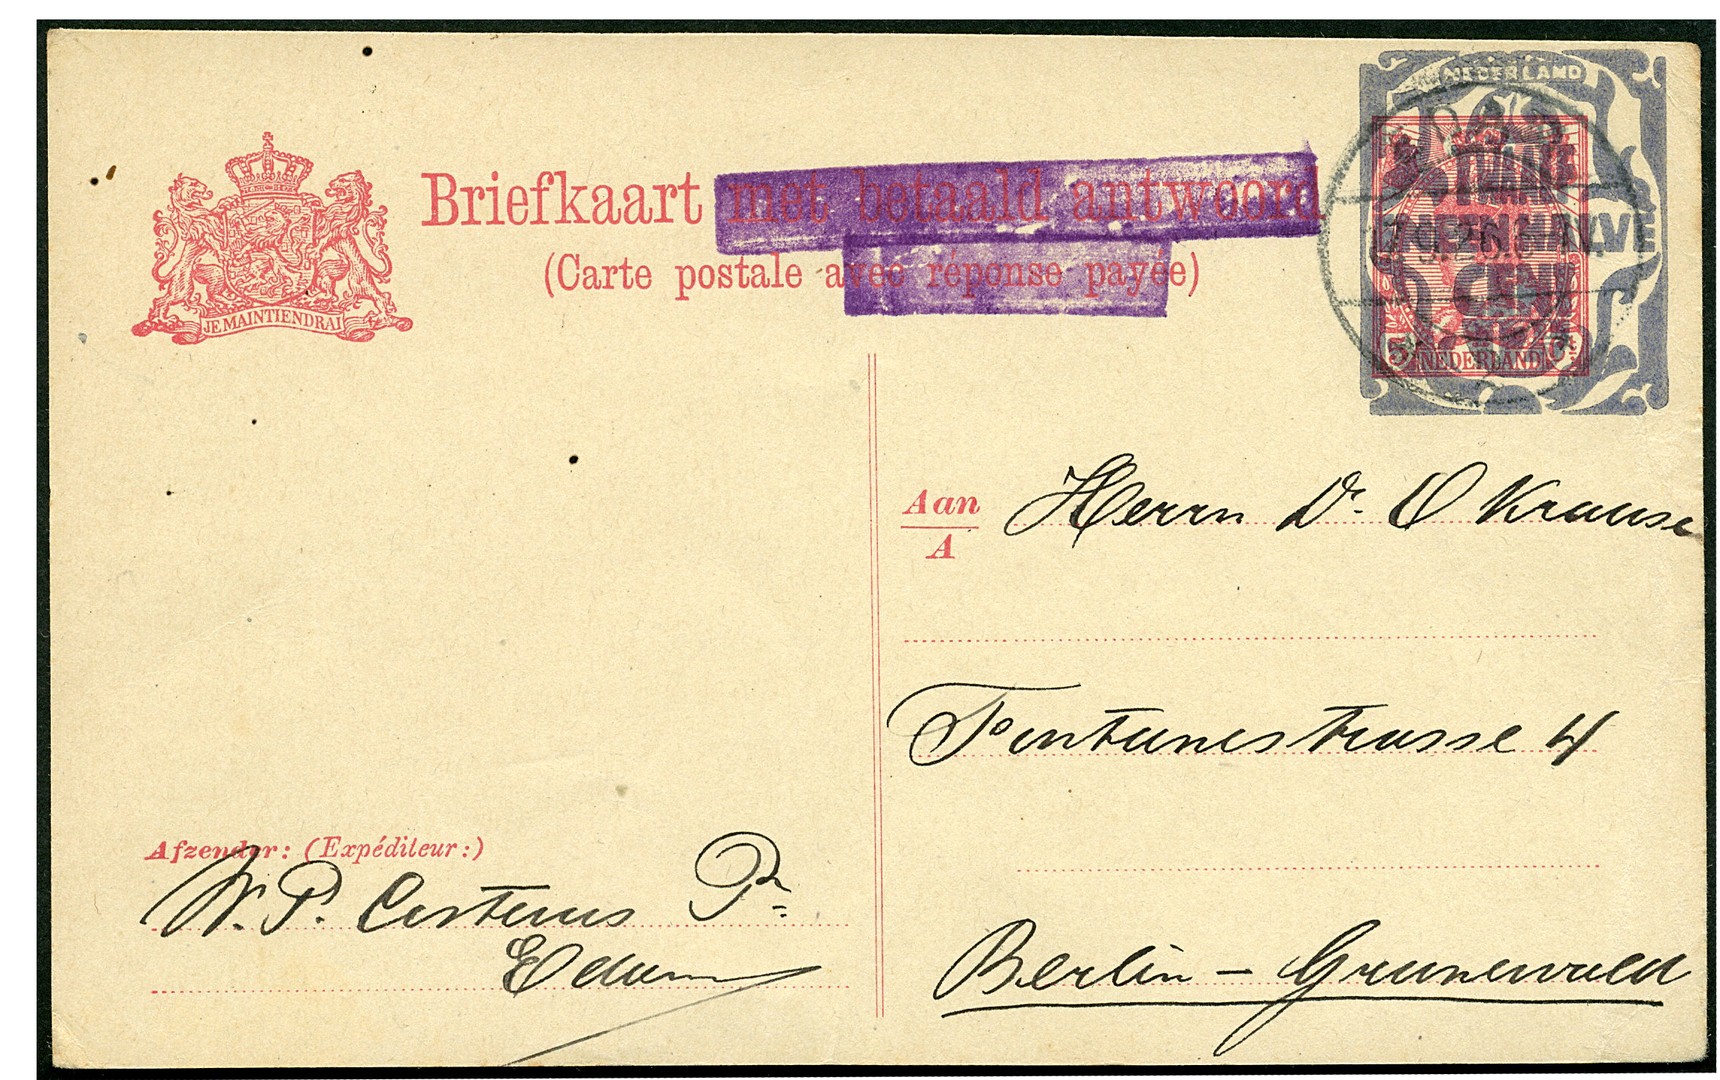 JE MAINTIENDRAI
Briefkaart met betaald antwoord
(Carte postale avec réponse payée)
NEDERLAND
HALVE
CENT
5 NEDERLAND
Aan
A
Herrn Dr. O Krause
Fontanestrasse 4
Berlin - Grunewald
Afzender: (Expéditeur:)
W. P. Costerus Pr.
Edam